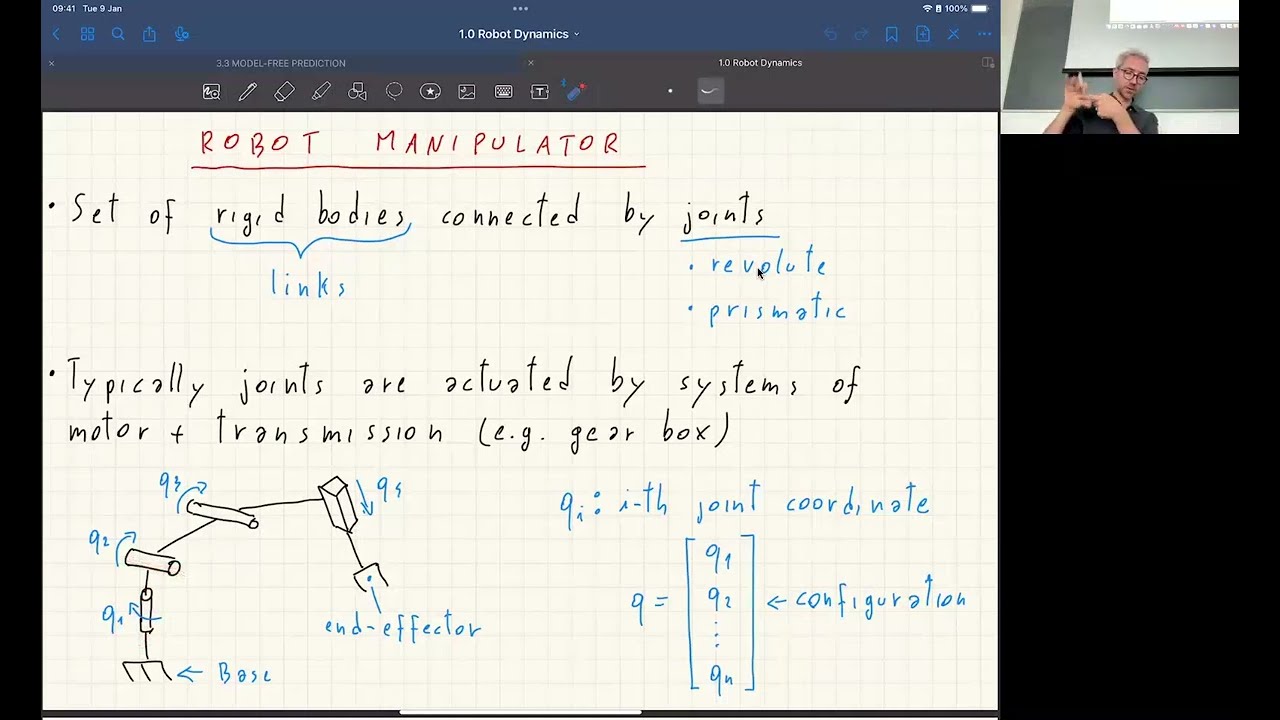 09:41 Tue 9 Jan
100%
1.0 Robot Dynamics
3.3 MODEL-FREE PREDICTION
1.0 Robot Dynamics
ROBOT MANIPULATOR
• Set of rigid bodies connected by joints
links
• revolute
• prismatic
• Typically joints are actuated by systems of
motor + transmission (e.g. gear box)
q3
q4
q2
q1
end-effector
← Base
qi: i-th joint coordinate
q = [q1 q2 ⋮ qn] ← configuration